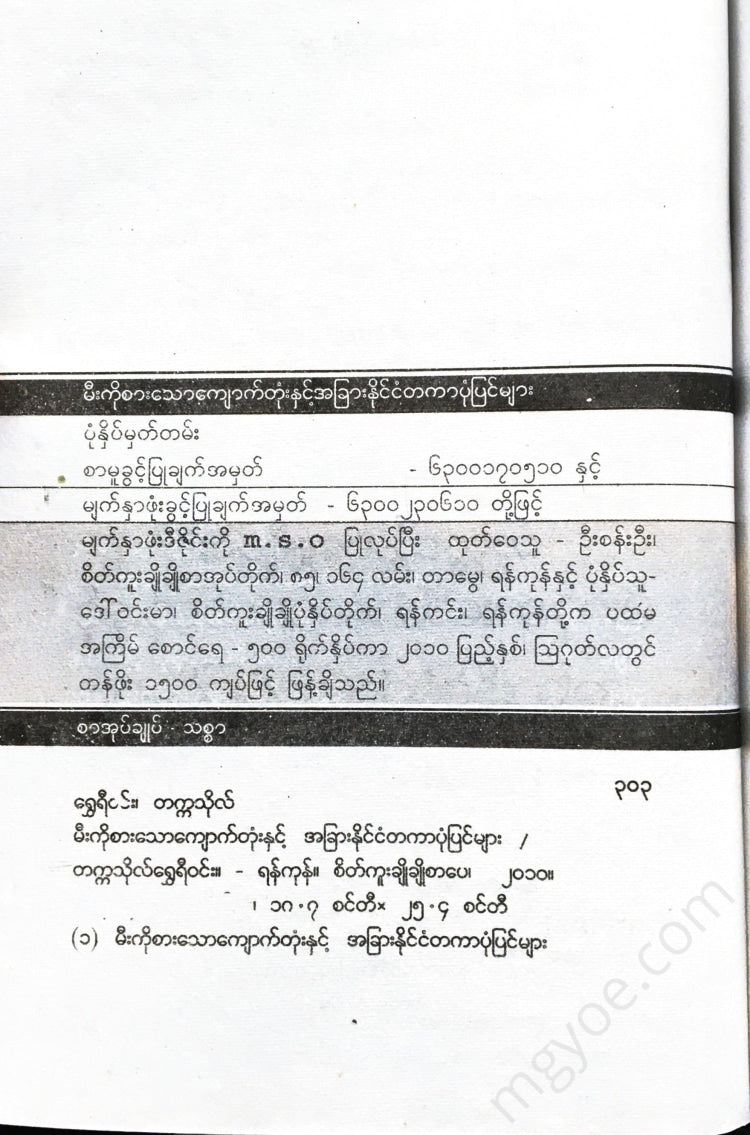 မီးကိုစားသောကျောက်တုံးနှင့်အခြားနိုင်ငံတကာပုံပြင်များ
ပုံနှိပ်မှတ်တမ်း
စာမူခွင့်ပြုချက်အမှတ် - ၆၃၀၀၁၇၀၅၁၀ နှင့်
မျက်နှာဖုံးခွင့်ပြုချက်အမှတ် - ၆၃၀၀၂၃၀၆၁၀ တို့ဖြင့်
မျက်နှာဖုံးဒီဇိုင်းကို m.s.o ပြုလုပ်ပြီး ထုတ်ဝေသူ - ဦးစန်းဦး၊
စိတ်ကူးချိုချိုစာအုပ်တိုက်၊ ၈၅၊ ၁၆၄ လမ်း၊ တာမွေ၊ ရန်ကုန်နှင့် ပုံနှိပ်သူ-
ဒေါ်ဝင်းမာ၊ စိတ်ကူးချိုချိုပုံနှိပ်တိုက်၊ ရန်ကင်း၊ ရန်ကုန်တို့က ပထမ
အကြိမ် စောင်ရေ - ၅၀၀ ရိုက်နှိပ်ကာ ၂၀၁၀ ပြည့်နှစ်၊ ဩဂုတ်လတွင်
တန်ဖိုး ၁၅၀၀ ကျပ်ဖြင့် ဖြန့်ချိသည်။
စာအုပ်ချုပ် - သစ္စာ
၃၀၃
ရွှေရီဝင်း၊ တက္ကသိုလ်
မီးကိုစားသောကျောက်တုံးနှင့် အခြားနိုင်ငံတကာပုံပြင်များ /
တက္ကသိုလ်ရွှေရီဝင်း။ - ရန်ကုန်။ စိတ်ကူးချိုချိုစာပေ၊ ၂၀၁၀။
၊ ၁၈.၇ စင်တီ× ၂၅.၄ စင်တီ
(၁) မီးကိုစားသောကျောက်တုံးနှင့် အခြားနိုင်ငံတကာပုံပြင်များ
mgyoe.com